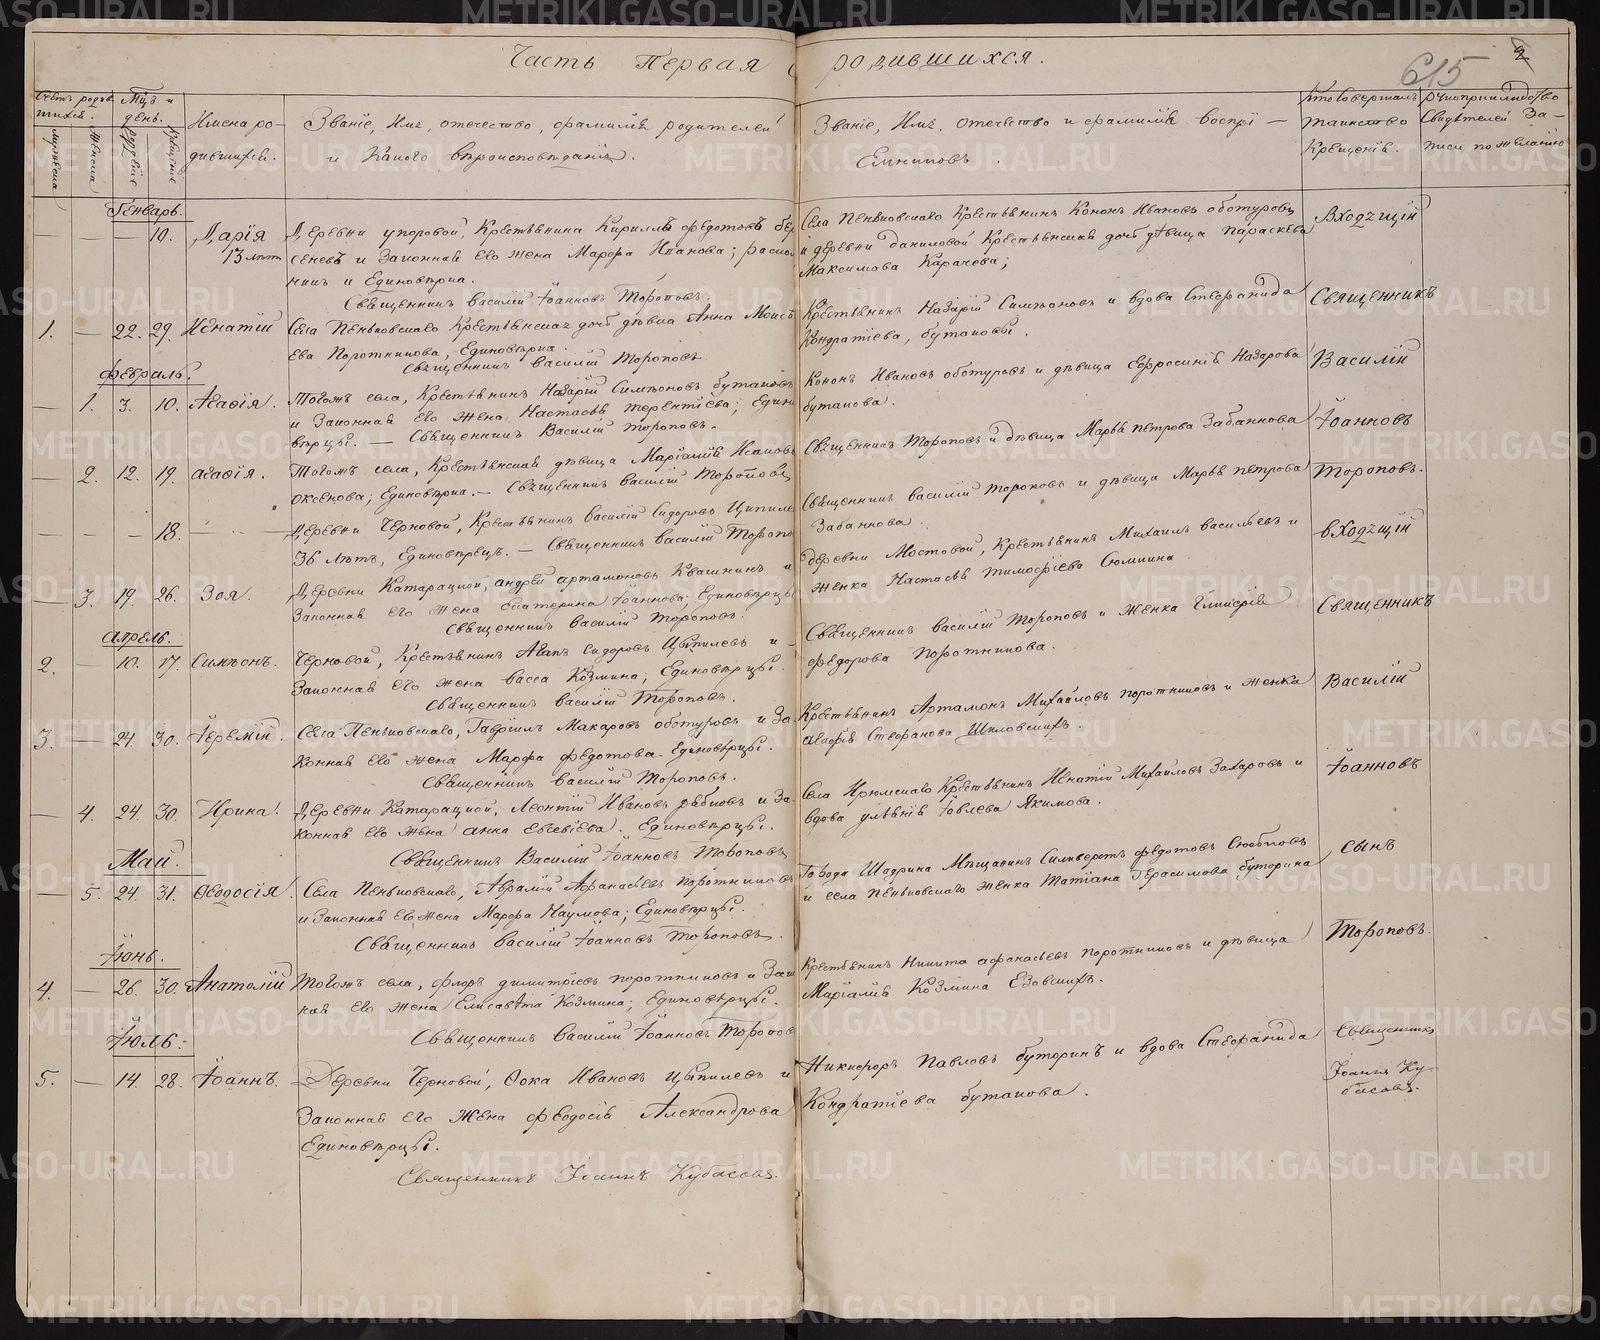 Часть Первая о родившихся.
615
2
Счетъ родив-
шихся.
Мужеска
Женска
Мцъ и
день.
Рожденіе
Крещеніе
Имена ро-
дившихся.
Званіе, Имя, отечество, фамилія родителей
и Какого вѣроисповѣданія.
Званіе, Имя, отечество и фамилія воспрі-
Емниковъ.
Кто Совершалъ
таинство
Крещенія.
Рукоприкладство
Свидѣтелей За-
писи по желанію
Генварь.
— — — 10. Дарія
13 лѣтъ
Деревни упоровой, Крестьянина Кириллъ Федотовъ
и Законная Его жена Марфа Иванова;
и Единовѣрка.
Священникъ Василій Іоанновъ Тороповъ.
Села Пеньковскаго Крестьянинъ Кононъ Ивановъ оботуровъ
и деревни даниловой Крестьянская дочь дѣвица Параскева
Максимова Карачева;
Входящій
1. — 22. 29. Игнатій
Села Пеньковскаго Крестьянская дочь дѣвка Анна Моисѣ
Ева Поротникова, Единовѣрка.
Священникъ Василій Тороповъ.
Крестьянинъ Назарій Симеоновъ и вдова Стефанида
Кондратіева, бутаковы.
Священникъ
Февраль.
— 1. 3. 10. Агафія.
Тогожъ села, Крестьянинъ Назарій Симеоновъ бутаковъ
и Законная Его жена Настасья терентіева; Едино
вѣрцы. — Священникъ Василій Тороповъ.
Кононъ Ивановъ оботуровъ и дѣвица Ефросинія Назарова
бутакова.
Василій
— 2. 12. 19. агафія.
Тогожъ села, Крестьянская дѣвица Маріамія Исакова
оксенова; Единовѣрка. — Священникъ Василій Тороповъ
Священникъ Тороповъ и дѣвица Марья петрова Забанкова
Іоанновъ
— — — 18. — —
Деревни Черновой, Крестьянинъ Василій Сидоровъ Ципиле
36 лѣтъ, Единовѣрецъ. — Священникъ Василій Торопо
Священникъ Василій Тороповъ и дѣвица Марья петрова
Забанкова.
Тороповъ.
— 3. 19. 26. Зоя.
Деревни Катарацкой, андрей артамоновъ Квашнинъ и
Законная Его жена Екатерина Іоаннова; Единовѣрцы
Священникъ Василій Тороповъ.
деревни Мостовой, Крестьянинъ Михаилъ васильевъ и
женка Настасья тимофіева Сюткина
входящій
Апрель.
2. — 10. 17. Симеонъ.
Черновой, Крестьянинъ Агапъ Сидоровъ Цыпилевъ и
Законная Его жена васса Козмина; Единовѣрцы.
Священникъ Василій Тороповъ.
Священникъ василій Тороповъ и женка Гликерія
федорова Поротникова.
Священникъ
3. — 24. 30. Іеремій.
Села Пеньковскаго, Гавріилъ Макаровъ оботуровъ и За-
конная Его жена Марфа Федотова Единовѣрцы.
Священникъ василій Тороповъ.
Крестьянинъ Артамонъ Михайловъ поротниковъ и женка
агафія Стефанова Шиловскихъ.
Василій
— 4. 24. 30. Ирина.
Деревни Катарацкой, Леонтій Ивановъ рябковъ и За-
конная Его жена анна Евсевіева. Единовѣрцы.
Священникъ Василій Іоанновъ Тороповъ
Села Ирюмскаго Крестьянинъ Игнатій Михайловъ Захаровъ и
вдова улѣянія Іовлева Якимова.
Іоанновъ
Май.
— 5. 24. 31. Ѳеодосія.
Села Пеньковскаго, Аврамій Афанасьевъ поротниковъ
и Законная Его жена Марфа Наумова; Единовѣрцы.
Священникъ василій Іоанновъ Тороповъ.
Города Шадрина Мѣщанинъ Сильверстъ федотовъ
и села Пеньковскаго женка Татіана Герасимова буторина
сынъ
Іюнь.
4. — 26. 30. Анатолій
Тогожъ села, флоръ димитріевъ поротниковъ и Закон
ная Его жена Елисавета Козмина; Единовѣрцы.
Священникъ Василій Іоанновъ Тороповъ
Крестьянинъ Никита афанасьевъ поротниковъ и дѣвица
Маріамія Козмина Езовскихъ.
Тороповъ.
Іюль:
5. — 14. 28. Іоаннъ.
Деревни Черновой, Ѳока Ивановъ Цыпилевъ и
Законная Его жена феодосія Александрова
Единовѣрцы.
Священникъ Іоаннъ Кубасовъ.
Никифоръ Павловъ буторинъ и вдова Стефанида
Кондратіева бутакова.
Священникъ
Іоаннъ Ку-
басовъ.
METRIKI.GASO-URAL.RU